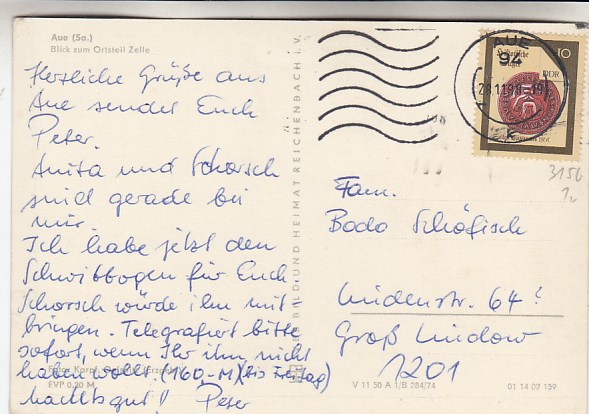 Aue (Sa.)
Blick zum Ortsteil Zelle
Herzliche Grüße aus
Aue sendet Euch
Peter.
Anita und Schorsch
sind gerade bei
mir.
Ich habe jetzt den
Schwibbogen für Euch
Schorsch würde ihn mit
bringen. Telegrafiert bitte
sofort, wenn Ihr ihn nicht
haben wollt. (160,-M) (bis Freitag)
Machts gut! Peter
EVP 0,20 M
BILD UND HEIMAT REICHENBACH i. V.
AUE
94
10
DDR
3156
Fam.
Bodo Schöfisch
Lindenstr. 64
Groß Lindow
1201
V 11 50 A 1/B 284/74
01 14 07 139